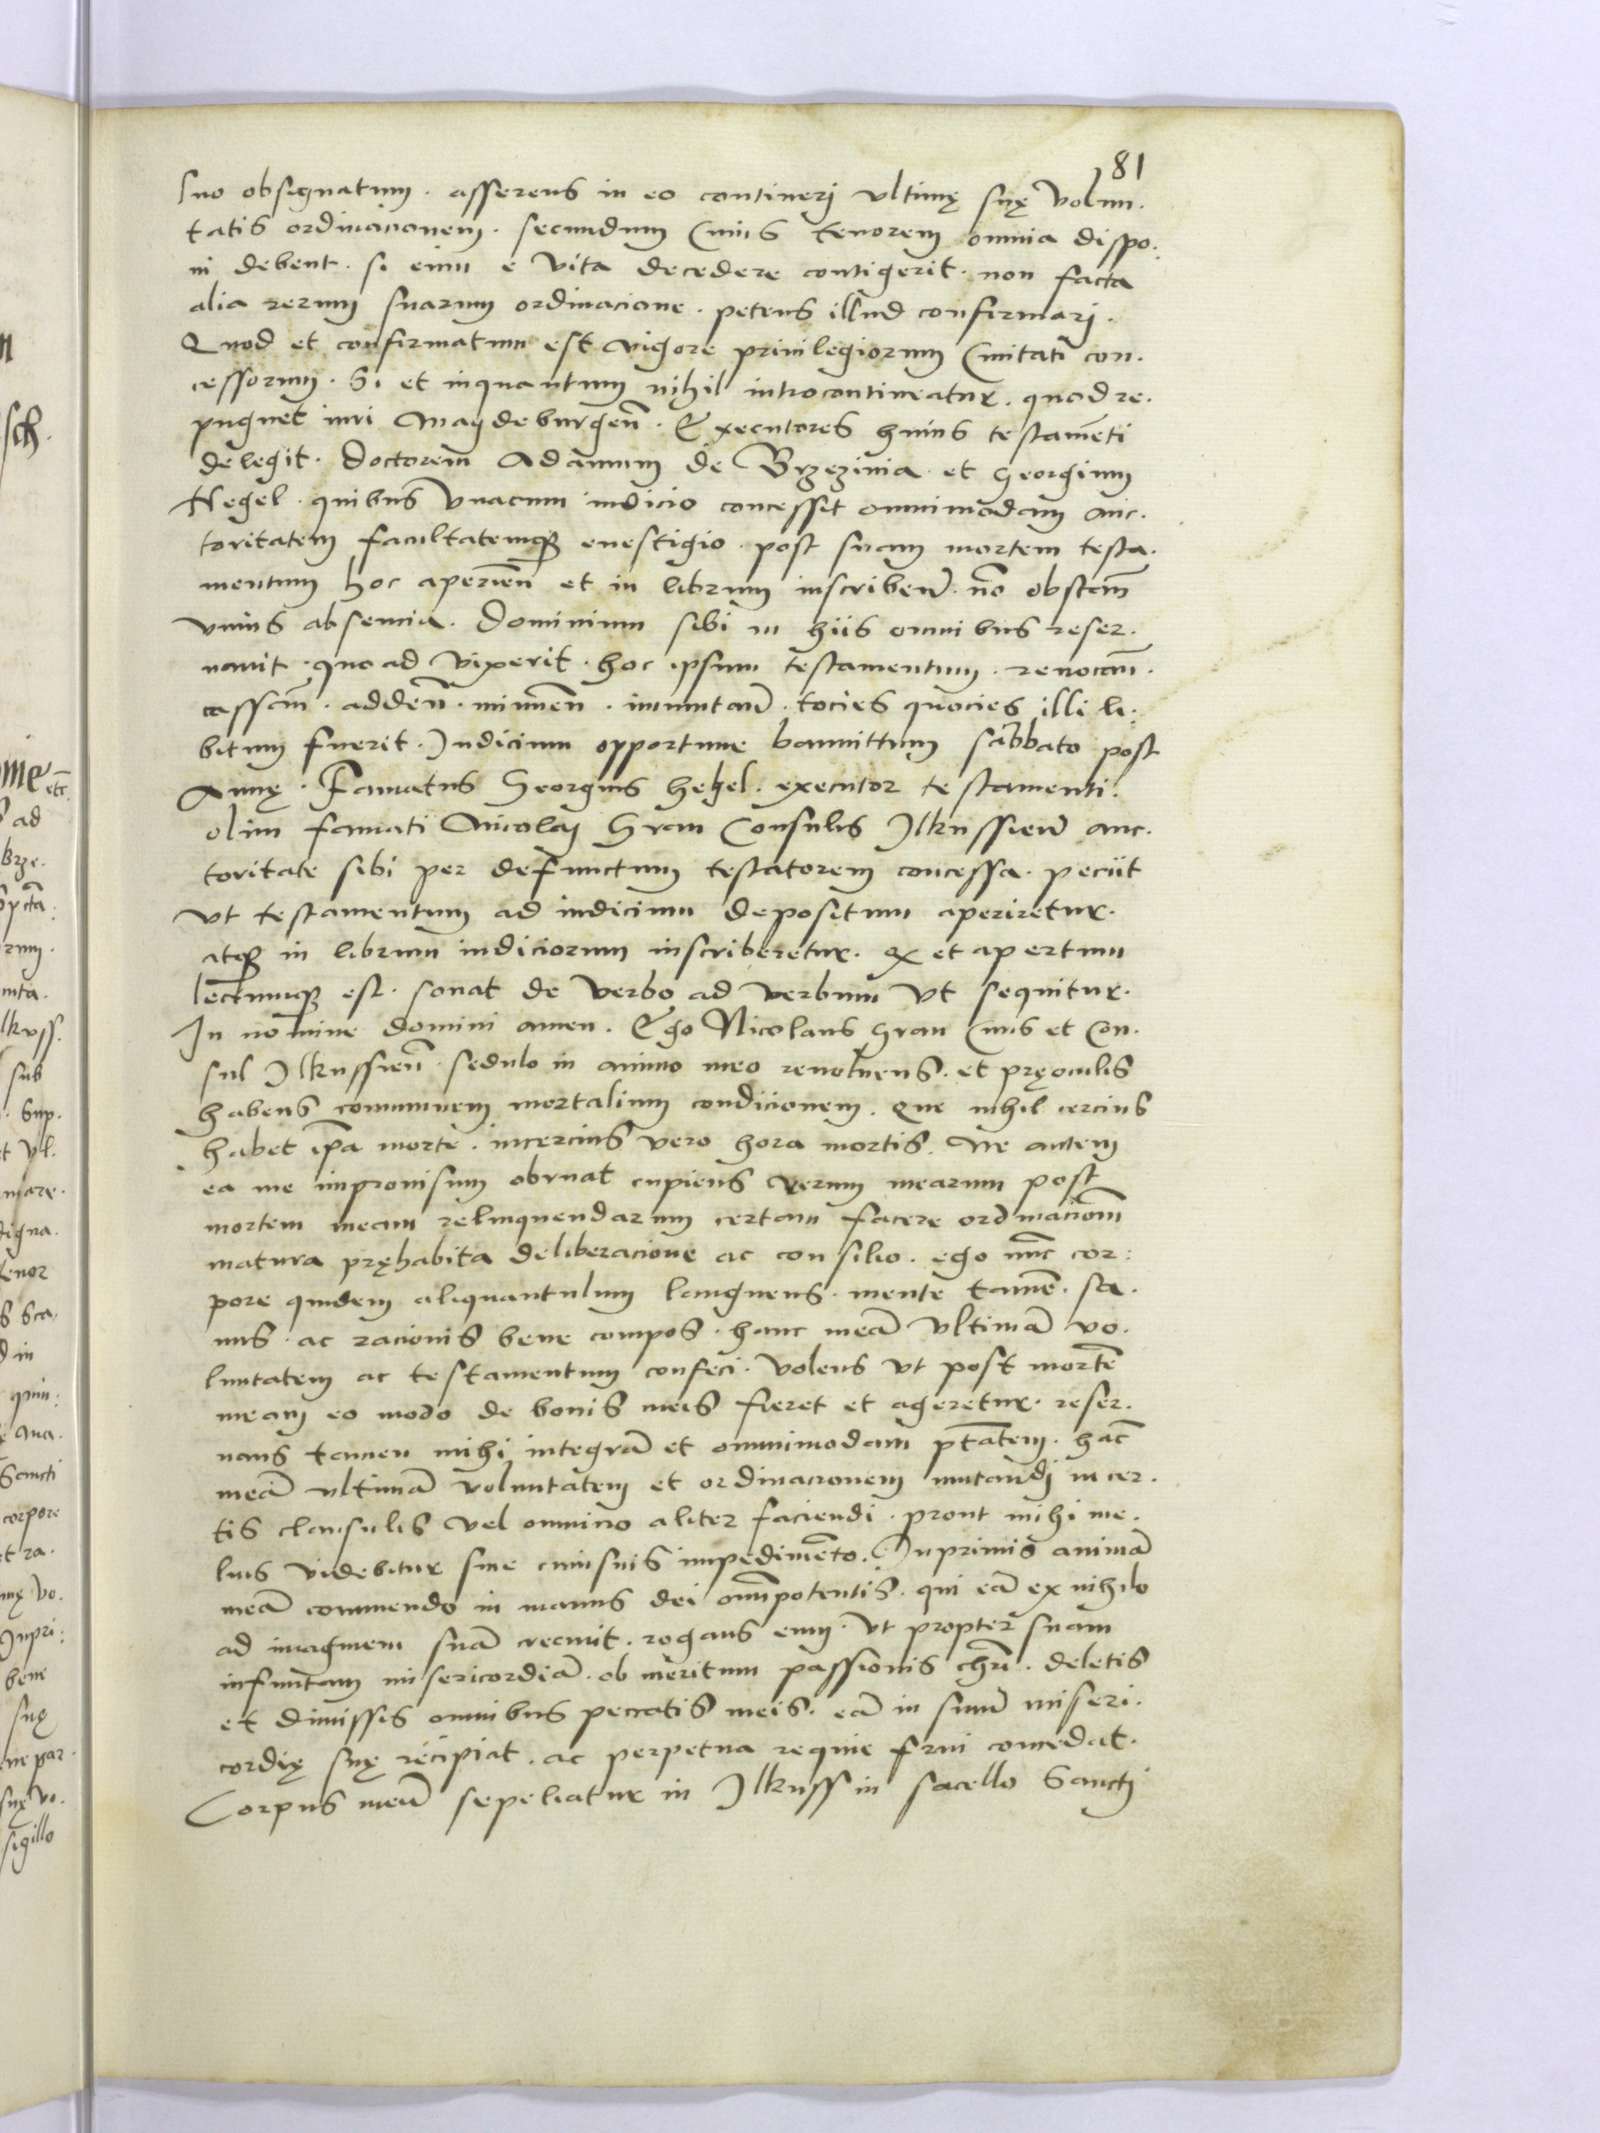 81
suo obsignatum. asserens in eo contineri ultimę suę volun.
tatis ordinacionem. secundum cuius tenorem omnia dispo:
ni debent. si eum e vita decedere contigerit. non facta
alia rerum suarum ordinacione. petens illud confirmari.
Quod et confirmatum est vigore privilegiorum Civitati con.
cessorum. Si et inquantum nihil introcontineatur. quod re.
pugnet iuri Magdeburgen̄. Executores huius testam̄eti
delegit. Doctorem Adamum de Brzezinia et Georgium
Hegel. quibus vnacum iudicio concessit omnimodam auc.
toritatem facultatemqꝫ evestigio. post suam mortem testa.
mentum hoc aperien̄ et in librum inscriben̄. nō obstan̄
vnius absencia. Dominium sibi in hiis omnibus reser.
uauit. quo ad vixerit. hoc ipsum testamentum. reuocan̄.
cassan̄. adden̄. minuen̄. immutan̄. tocies quocies illi li.
bitum fuerit. Iudicium opportune bannittum sabbato post
Annę. Famatus Georgius hegel. executor testamenti.
olim famati Nicolaj Gran Consulis Ilkussien̄ auc.
toritate sibi per defunctum testatorem concessa. peciit
vt testamentum ad iudicium depositum aperiretur.
atqꝫ in librum iudiciorum inscriberetur. qđ et apertum
lectumqꝫ est. sonat de verbo ad verbum vt sequitur.
In nomine domini amen. Ego Nicolaus Gran Ciuis et Con.
sul Ilkussien̄ sedulo in animo meo reuoluens. et pręoculis
habens communem mortalium condicionem. que nihil cercius
habet ip̄a morte. incercius vero hora mortis. Ne autem
ea me improuisum obruat cupiens rerum mearum post
mortem meam relinquendarum certam facere ordinacionem̄
matura pręhabita deliberacione ac consilio. ego nūc cor:
pore quidem aliquantulum languens. mente tamē. sa.
nus. ac racionis bene compos. hanc meā vltimā vo.
luntatem ac testamentum confeci. volens vt post mortē
meam eo modo de bonis meis fieret et ageretur. reser.
uans tamen mihi integrā et omnimodam ptātem. hāc
meā vltimā voluntatem et ordinacionem mutandj in cer.
tis clausulis vel omnino aliter faciendi. prout mihi me.
lius videbitur sine cuiusuis impedimēto. Inprimis animā
meā commendo in manus dei om̄ipotentis. qui eā ex nihilo
ad imaginem suā creauit. rogans eum. vt propter suam
infinitam misericordiā. ob meritum passionis chrī. deletis
et dimissis omnibus peccatis meis. eā in sinū miseri.
cordię suę recipiat. ac perpetua requie frui concedat.
Corpus meū sepeliatur in Ilkuss in sacello Sanctj